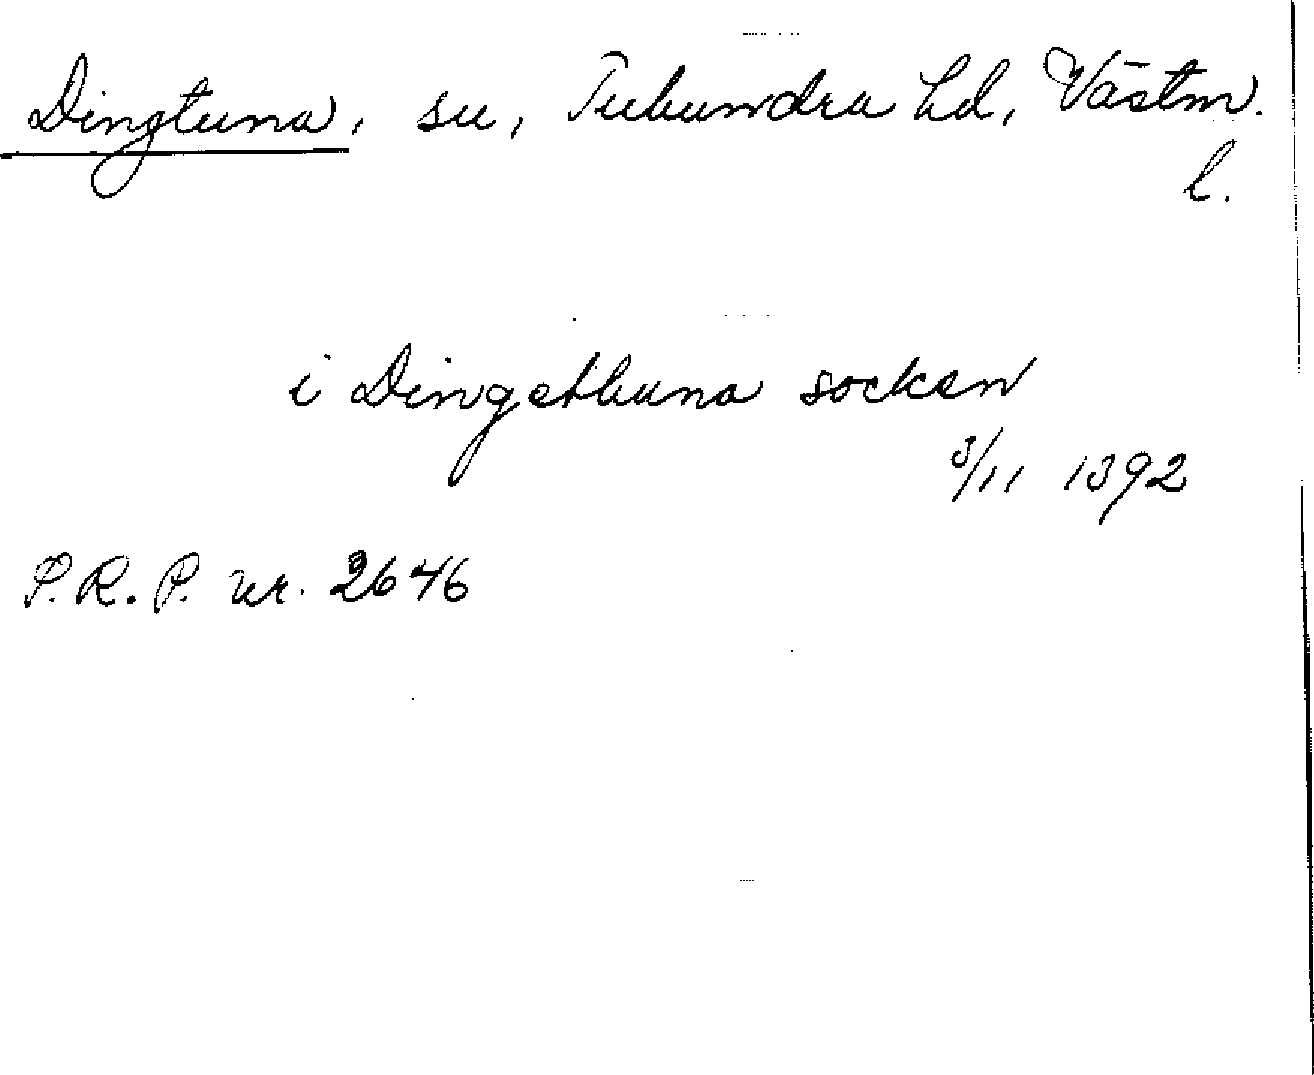 Dingtuna, sn, Tuhundra hd, Västm.
l.
i Dingethuna socken
3/11 1392
S.R.P. nr. 2646